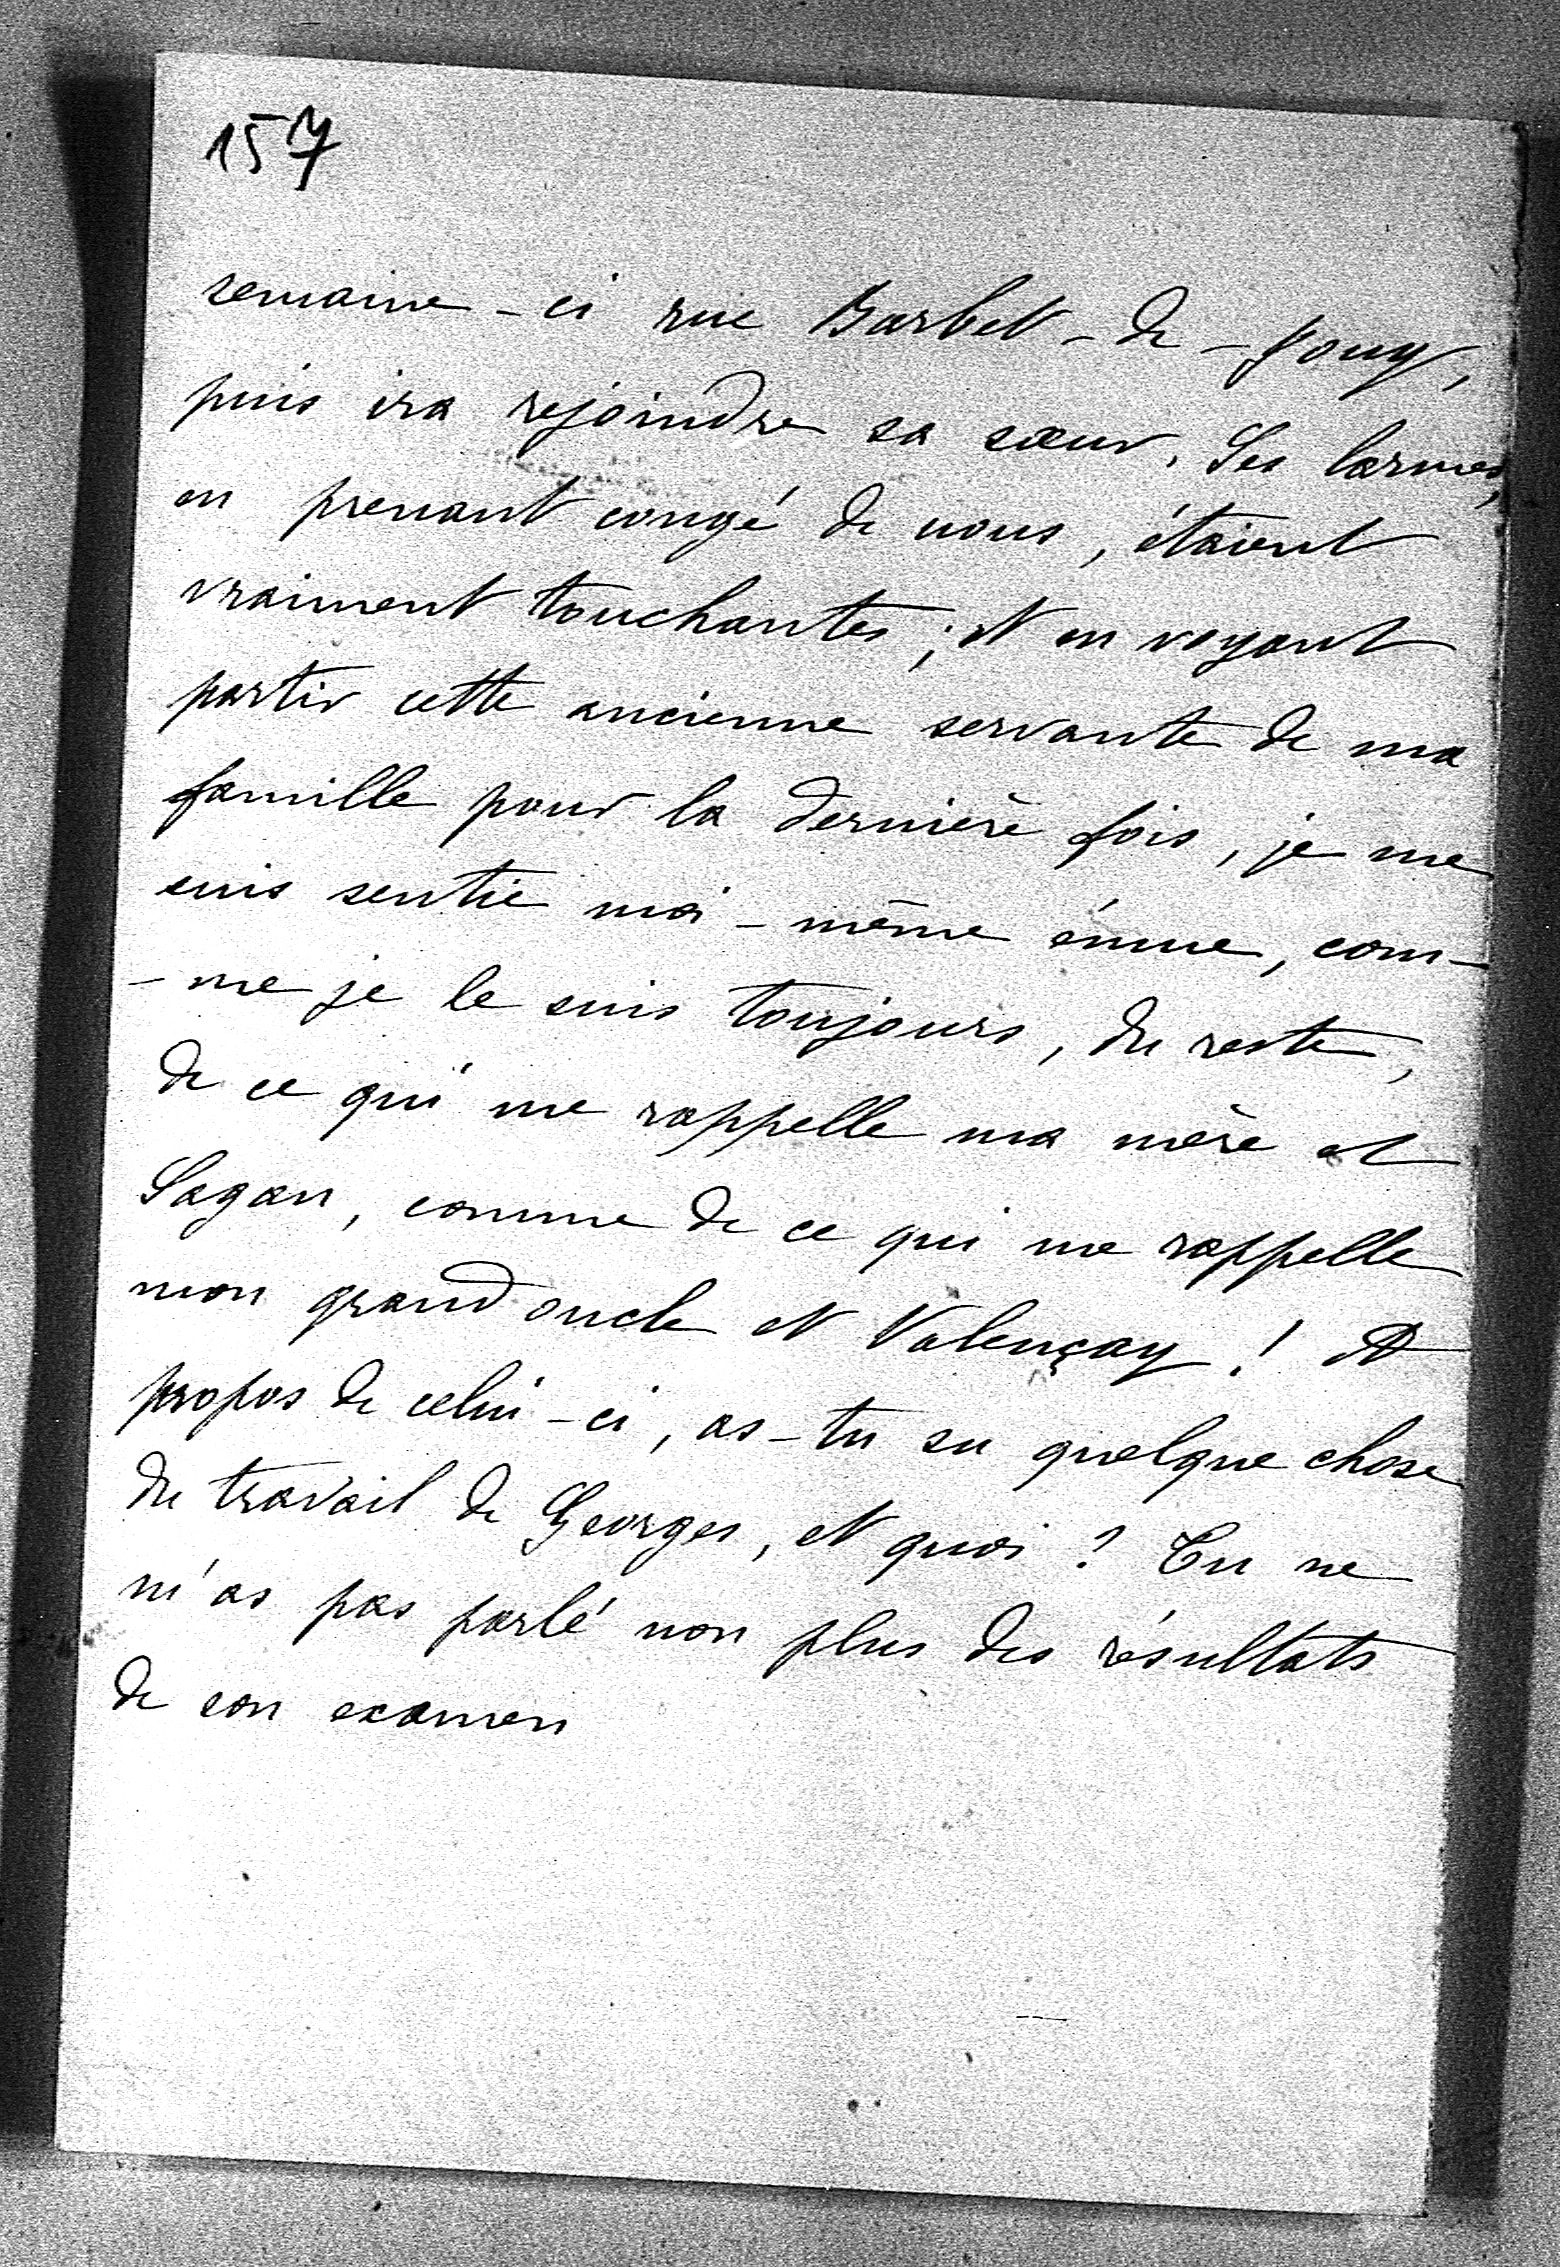 157
semaine-ci rue Barbet-de-Jouy,
puis ira rejoindre sa sœur. Ses larmes,
en prenant congé de nous, étaient
vraiment touchantes; et en voyant
partir cette ancienne servante de ma
famille pour la dernière fois, je me
suis sentie moi-même émue, com-
-me je le suis toujours, du reste,
de ce qui me rappelle ma mère et
Sagan, comme de ce qui me rappelle
mon grand oncle et Valençay! A
propos de celui-ci, as-tu su quelque chose
du travail de Georges, et quoi? Tu ne
m'as pas parlé non plus des résultats
de son examen